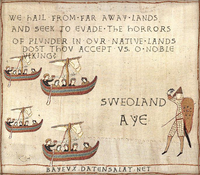 WE HAIL FROM FAR AWAY LANDS
AND SEEK TO EVADE THE HORRORS
OF PLVNDER IN OVR NATIVE LANDS
DOST THOV ACCEPT VS O NOBLE
VIKING?
SWEOLAND
AYE
BAYEVX.DATENSALAT.NET